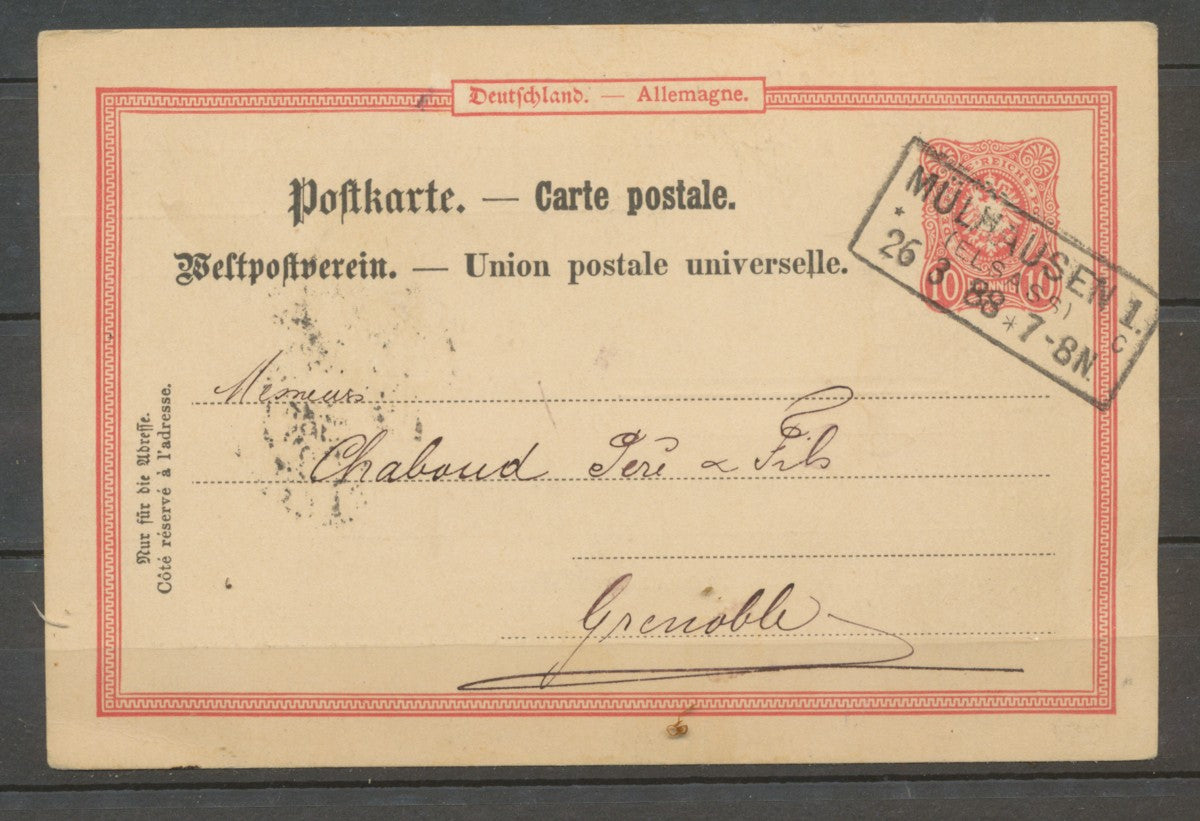 Deutschland. — Allemagne.
Postkarte. — Carte postale.
Weltpostverein. — Union postale universelle.
REICHS-POST
10 PFENNIG 10
MÜLHAUSEN 1.
(ELSASS) C
* 26 3 88 * 7-8N.
Messieurs
Chaboud Père & Fils
Grenoble
Nur für die Adresse.
Côté réservé à l'adresse.